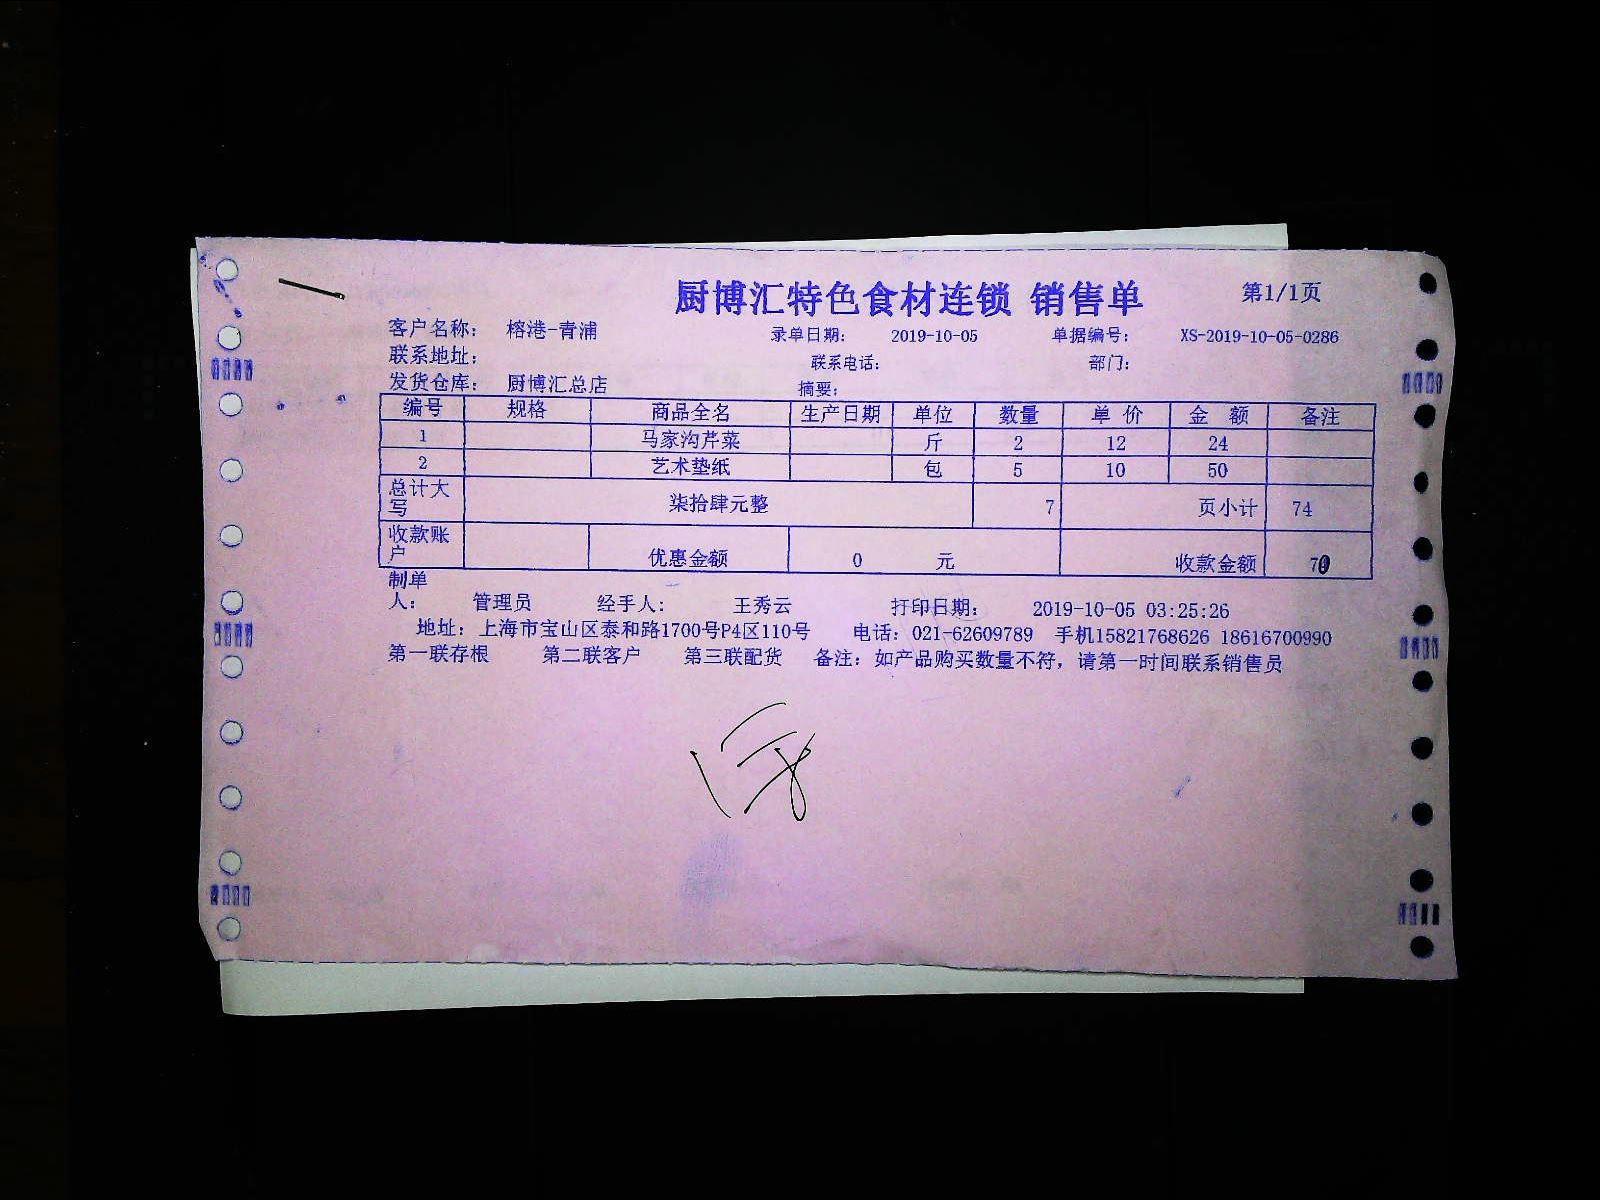 厨博汇特色食材连锁 销售单 第1/1页
客户名称： 榕港-青浦 录单日期： 2019-10-05 单据编号： XS-2019-10-05-0286
联系地址： 联系电话： 部门：
发货仓库： 厨博汇总店 摘要：
编号 规格 商品全名 生产日期 单位 数量 单 价 金 额 备注
1 马家沟芹菜 斤 2 12 24
2 艺术垫纸 包 5 10 50
总计大写 柒拾肆元整 7 页小计 74
收款账户 优惠金额 0 元 收款金额 70
制单人： 管理员 经手人： 王秀云 打印日期： 2019-10-05 03:25:26
地址：上海市宝山区泰和路1700号P4区110号 电话：021-62609789 手机15821768626 18616700990
第一联存根 第二联客户 第三联配货 备注：如产品购买数量不符，请第一时间联系销售员